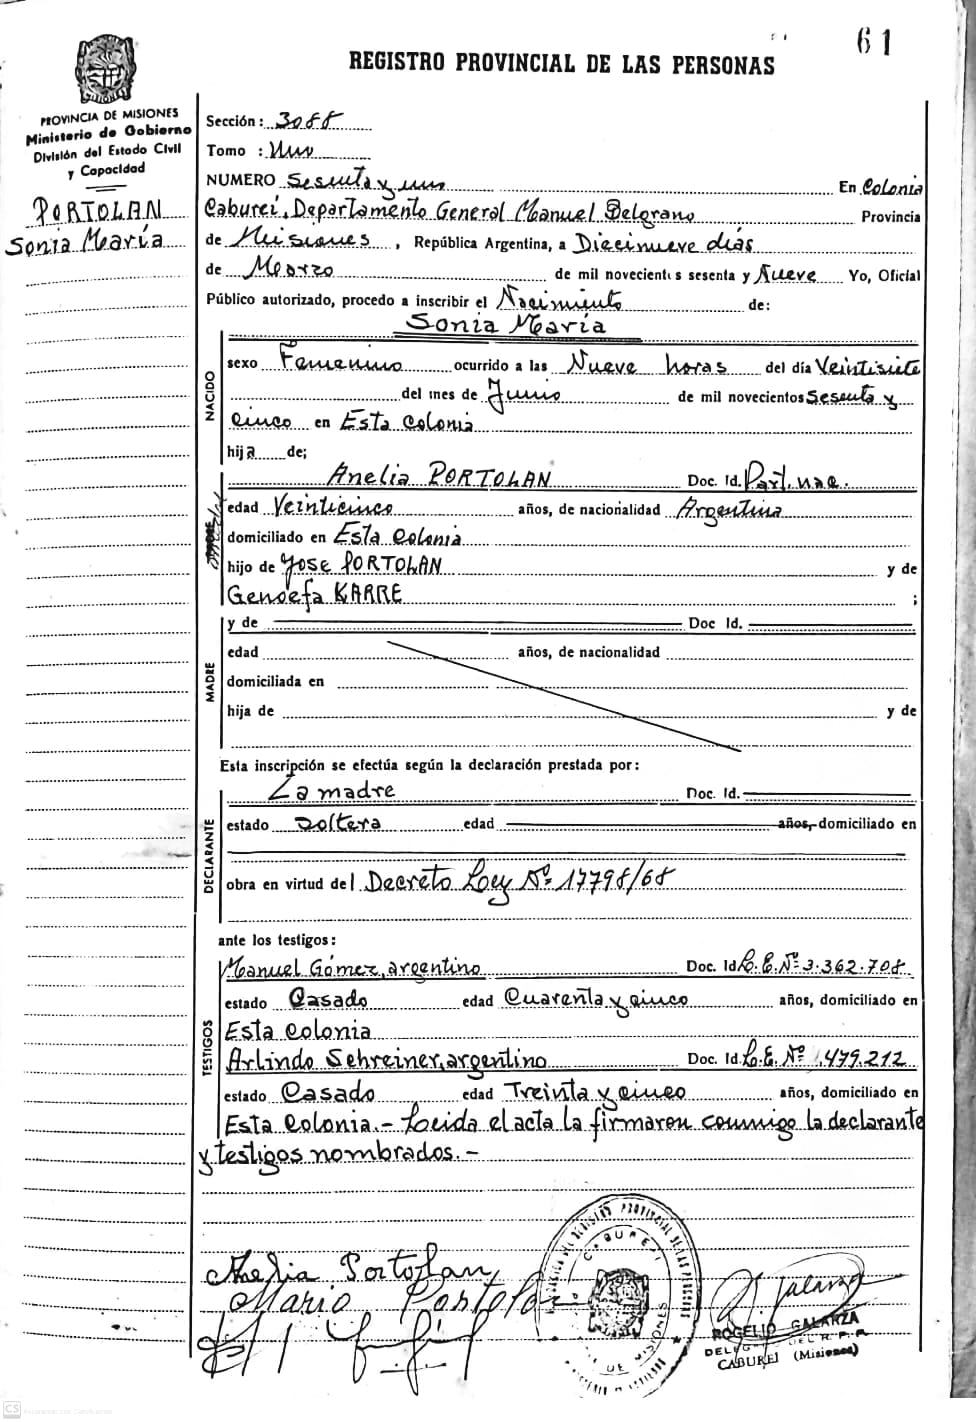 61
REGISTRO PROVINCIAL DE LAS PERSONAS
PROVINCIA DE MISIONES
Ministerio de Gobierno
División del Estado Civil
y Capacidad
PORTOLAN
Sonia María
Sección: 3088
Tomo : Uno
NUMERO Sesenta y uno En Colonia
Caburei, Departamento General Manuel Belgrano Provincia
de Misiones, República Argentina, a Diecinueve días
de Marzo de mil novecientos sesenta y Nueve Yo, Oficial
Público autorizado, procedo a inscribir el Nacimiento de:
Sonia María
NACIDO
sexo Femenino ocurrido a las Nueve horas del día Veintisiete
del mes de Junio de mil novecientos Sesenta y
cinco en Esta Colonia
hija de;
Anelia PORTOLAN Doc. Id. Part. nac.
edad Veinticinco años, de nacionalidad Argentina
domiciliado en Esta Colonia
hijo de Jose PORTOLAN y de
Genoefa KARRE ;
MADRE
y de Doc Id.
edad años, de nacionalidad
domiciliada en
hija de y de
Esta inscripción se efectúa según la declaración prestada por:
DECLARANTE
La madre Doc. Id.
estado Soltera edad años, domiciliado en
obra en virtud del Decreto Ley Nº 17798/68
ante los testigos:
TESTIGOS
Manuel Gómez, argentino Doc. Id L.E. Nº 3.362.708.
estado Casado edad Cuarenta y cinco años, domiciliado en
Esta Colonia
Arlindo Schreiner, argentino Doc. Id. L.E. Nº 479.212
estado Casado edad Treinta y cinco años, domiciliado en
Esta Colonia.- Leida el acta la firmaron conmigo la declarante
y testigos nombrados.-
Anelia Portolan
Mario
CABUREI
DE MISIONES
ROGELIO GALARZA
DELEG DEL R. P. P.
CABUREI (Misiones)
CS